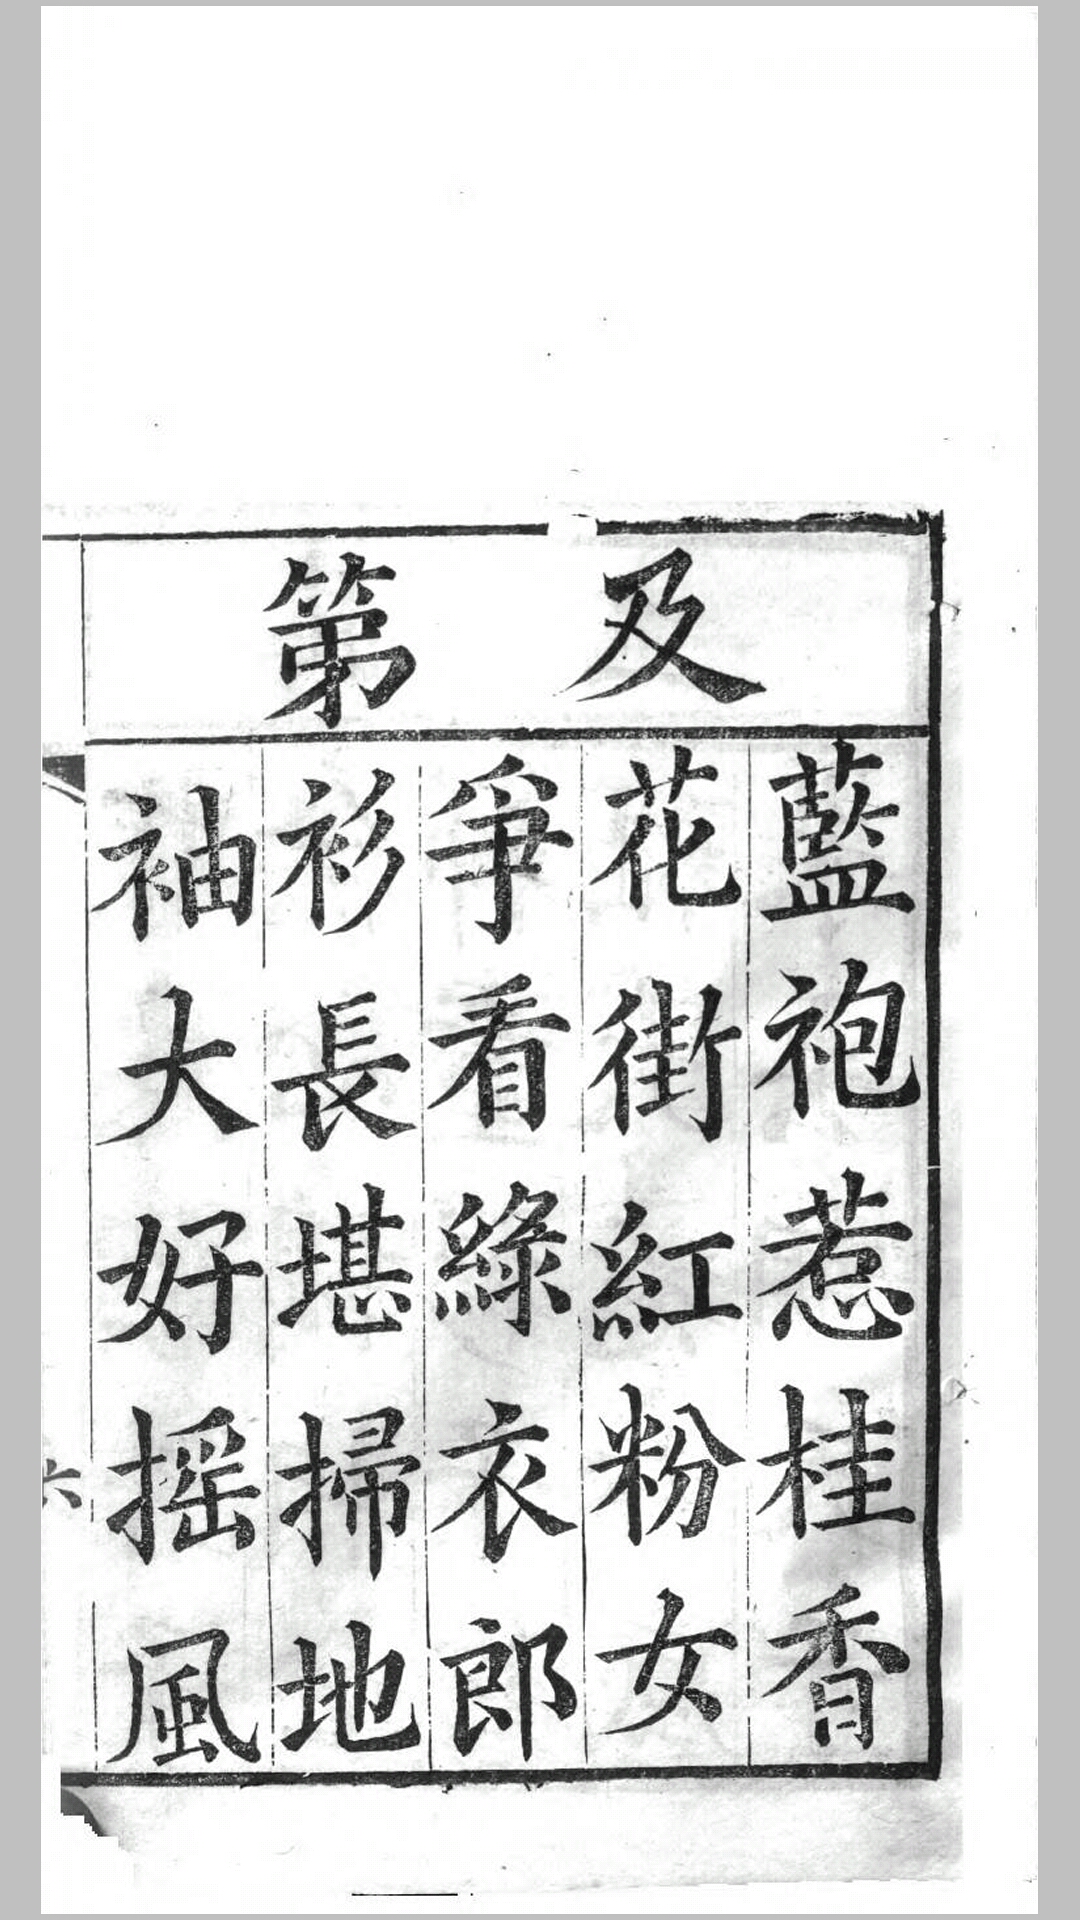 及第
藍袍惹桂香
花街紅粉女
爭看綠衣郎
衫長堪掃地
袖大好搖風
六